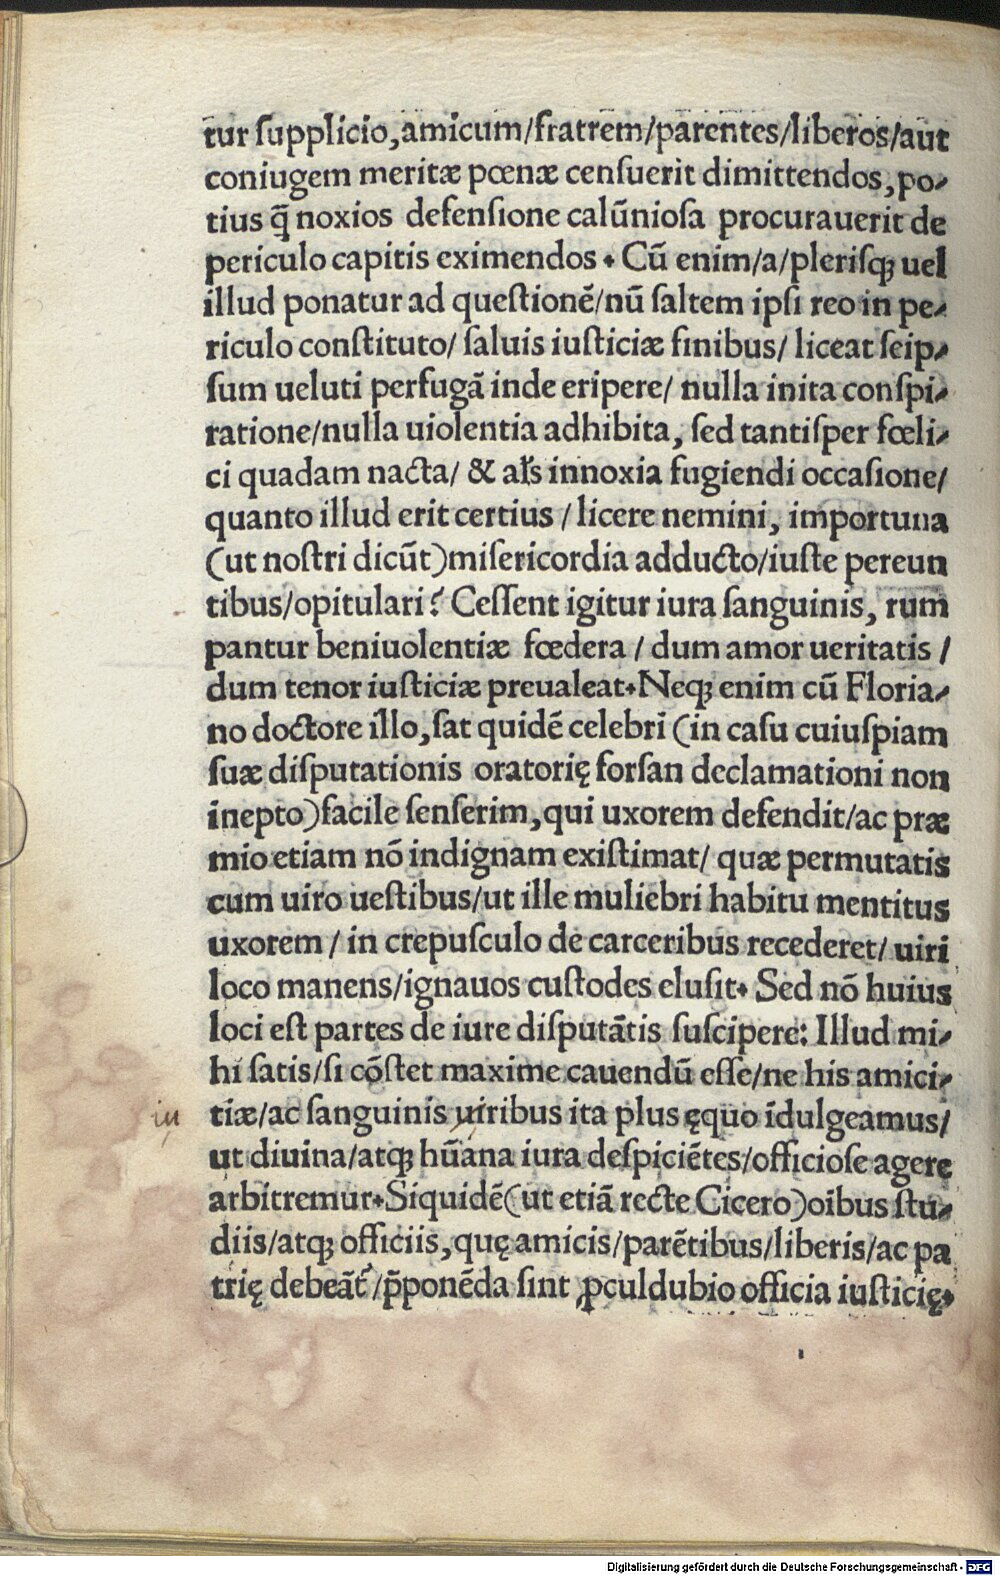 tur ſupplicio,amicum/fratrem/parentes/liberos/aut
coniugem meritæ pœnæ cenſuerit dimittendos,po⸗
tius q̃ noxios defenſione calũnioſa procurauerit de
periculo capitis eximendos. Cũ enim/a/pleriſqꝫ uel
illud ponatur ad queſtionẽ/nũ ſaltem ipſi reo in pe⸗
riculo conſtituto/ ſaluis iuſticiæ finibus/ liceat ſeip⸗
ſum ueluti perfugã inde eripere/ nulla inita conſpi⸗
ratione/nulla uiolentia adhibita, ſed tantiſper fœli⸗
ci quadam nacta/ & al̃s innoxia fugiendi occaſione/
quanto illud erit certius / licere nemini, importuna
(ut noſtri dicũt)miſericordia adducto/iuſte pereun
tibus/opitulari? Ceſſent igitur iura ſanguinis, rum
pantur beniuolentiæ fœdera / dum amor ueritatis /
dum tenor iuſticiæ preualeat.Neqꝫ enim cũ Floria⸗
no doctore illo,ſat quidẽ celebri (in caſu cuiuſpiam
ſuæ diſputationis oratorię forſan declamationi non
inepto)facile ſenſerim,qui uxorem defendit/ac præ
mio etiam nõ indignam exiſtimat/ quæ permutatis
cum uiro ueſtibus/ut ille muliebri habitu mentitus
uxorem / in crepuſculo de carceribus recederet/ uiri
loco manens/ignauos cuſtodes eluſit. Sed nõ huius
loci eſt partes de iure diſputãtis ſuſcipere: Illud mi⸗
hi ſatis/ſi cõſtet maxime cauendũ eſſe/ne his amici⸗
iu tiæ/ac ſanguinis uiribus ita plus ęquo ĩdulgeamus/
ut diuina/atqꝫ hũana iura deſpiciẽtes/officioſe agere
arbitremur.Siquidẽ(ut etiã recte Cicero)oĩbus ſtu⸗
diis/atqꝫ officiis,quę amicis/parẽtibus/liberis/ac pa
trię debeãt᷑/p̃ponẽda ſint ꝓculdubio officia iuſticię.
Digitalisierung gefördert durch die Deutsche Forschungsgemeinschaft - DFG